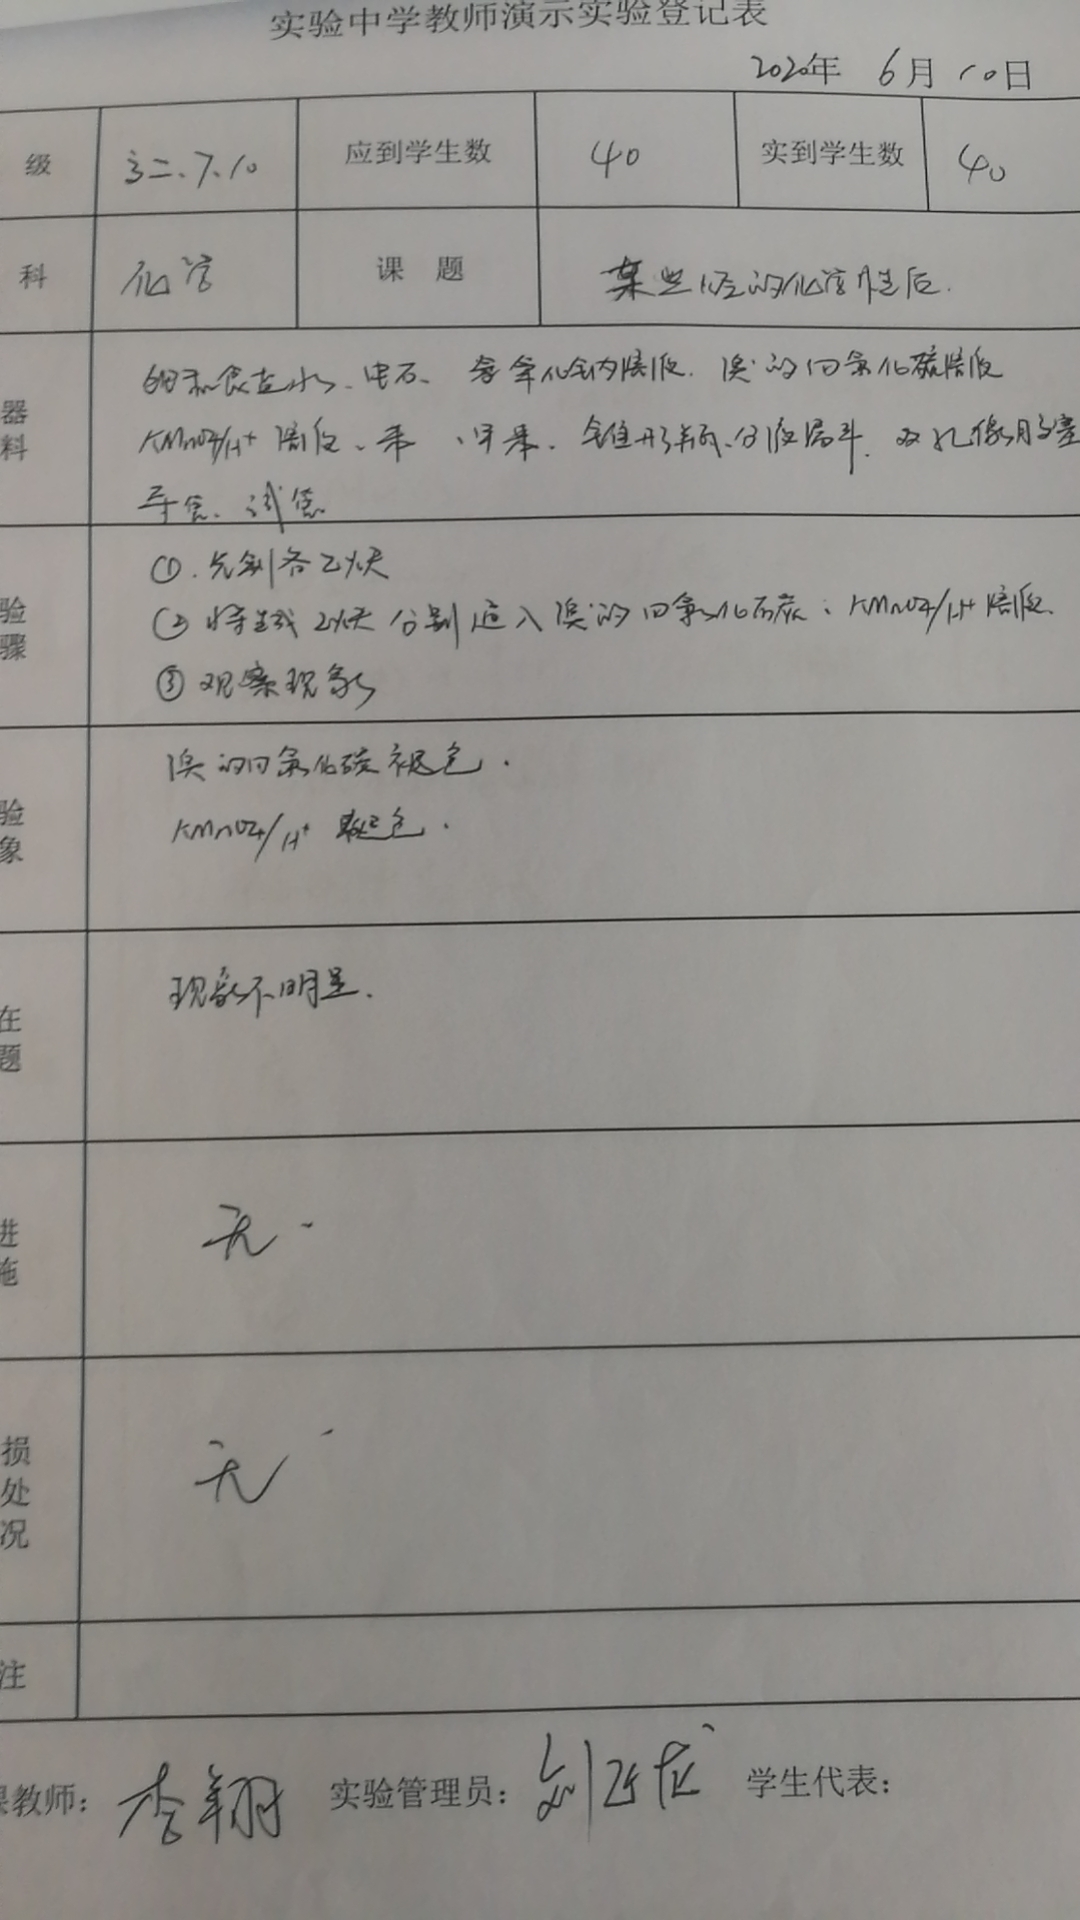 实验中学教师演示实验登记表
2020年 6月 10日
级 高二.7.10 应到学生数 40 实到学生数 40
科 化学 课 题 某些烃的化学性质.
器 饱和食盐水、电石、氢氧化钠溶液. 溴的四氯化碳溶液
料 KMnO4/H+ 溶液、苯、甲苯、锥形瓶、分液漏斗、双孔橡胶塞
导管、试管
①.先制备乙炔
验 ②将生成乙炔分别通入溴的四氯化碳; KMnO4/H+溶液.
骤 ③观察现象
溴的四氯化碳褪色.
验 KMnO4/H+ 褪色.
象
现象不明显.
在
题
进 无.
施
损 无
处
况
注
课教师: 李翔 实验管理员: 刘 学生代表: